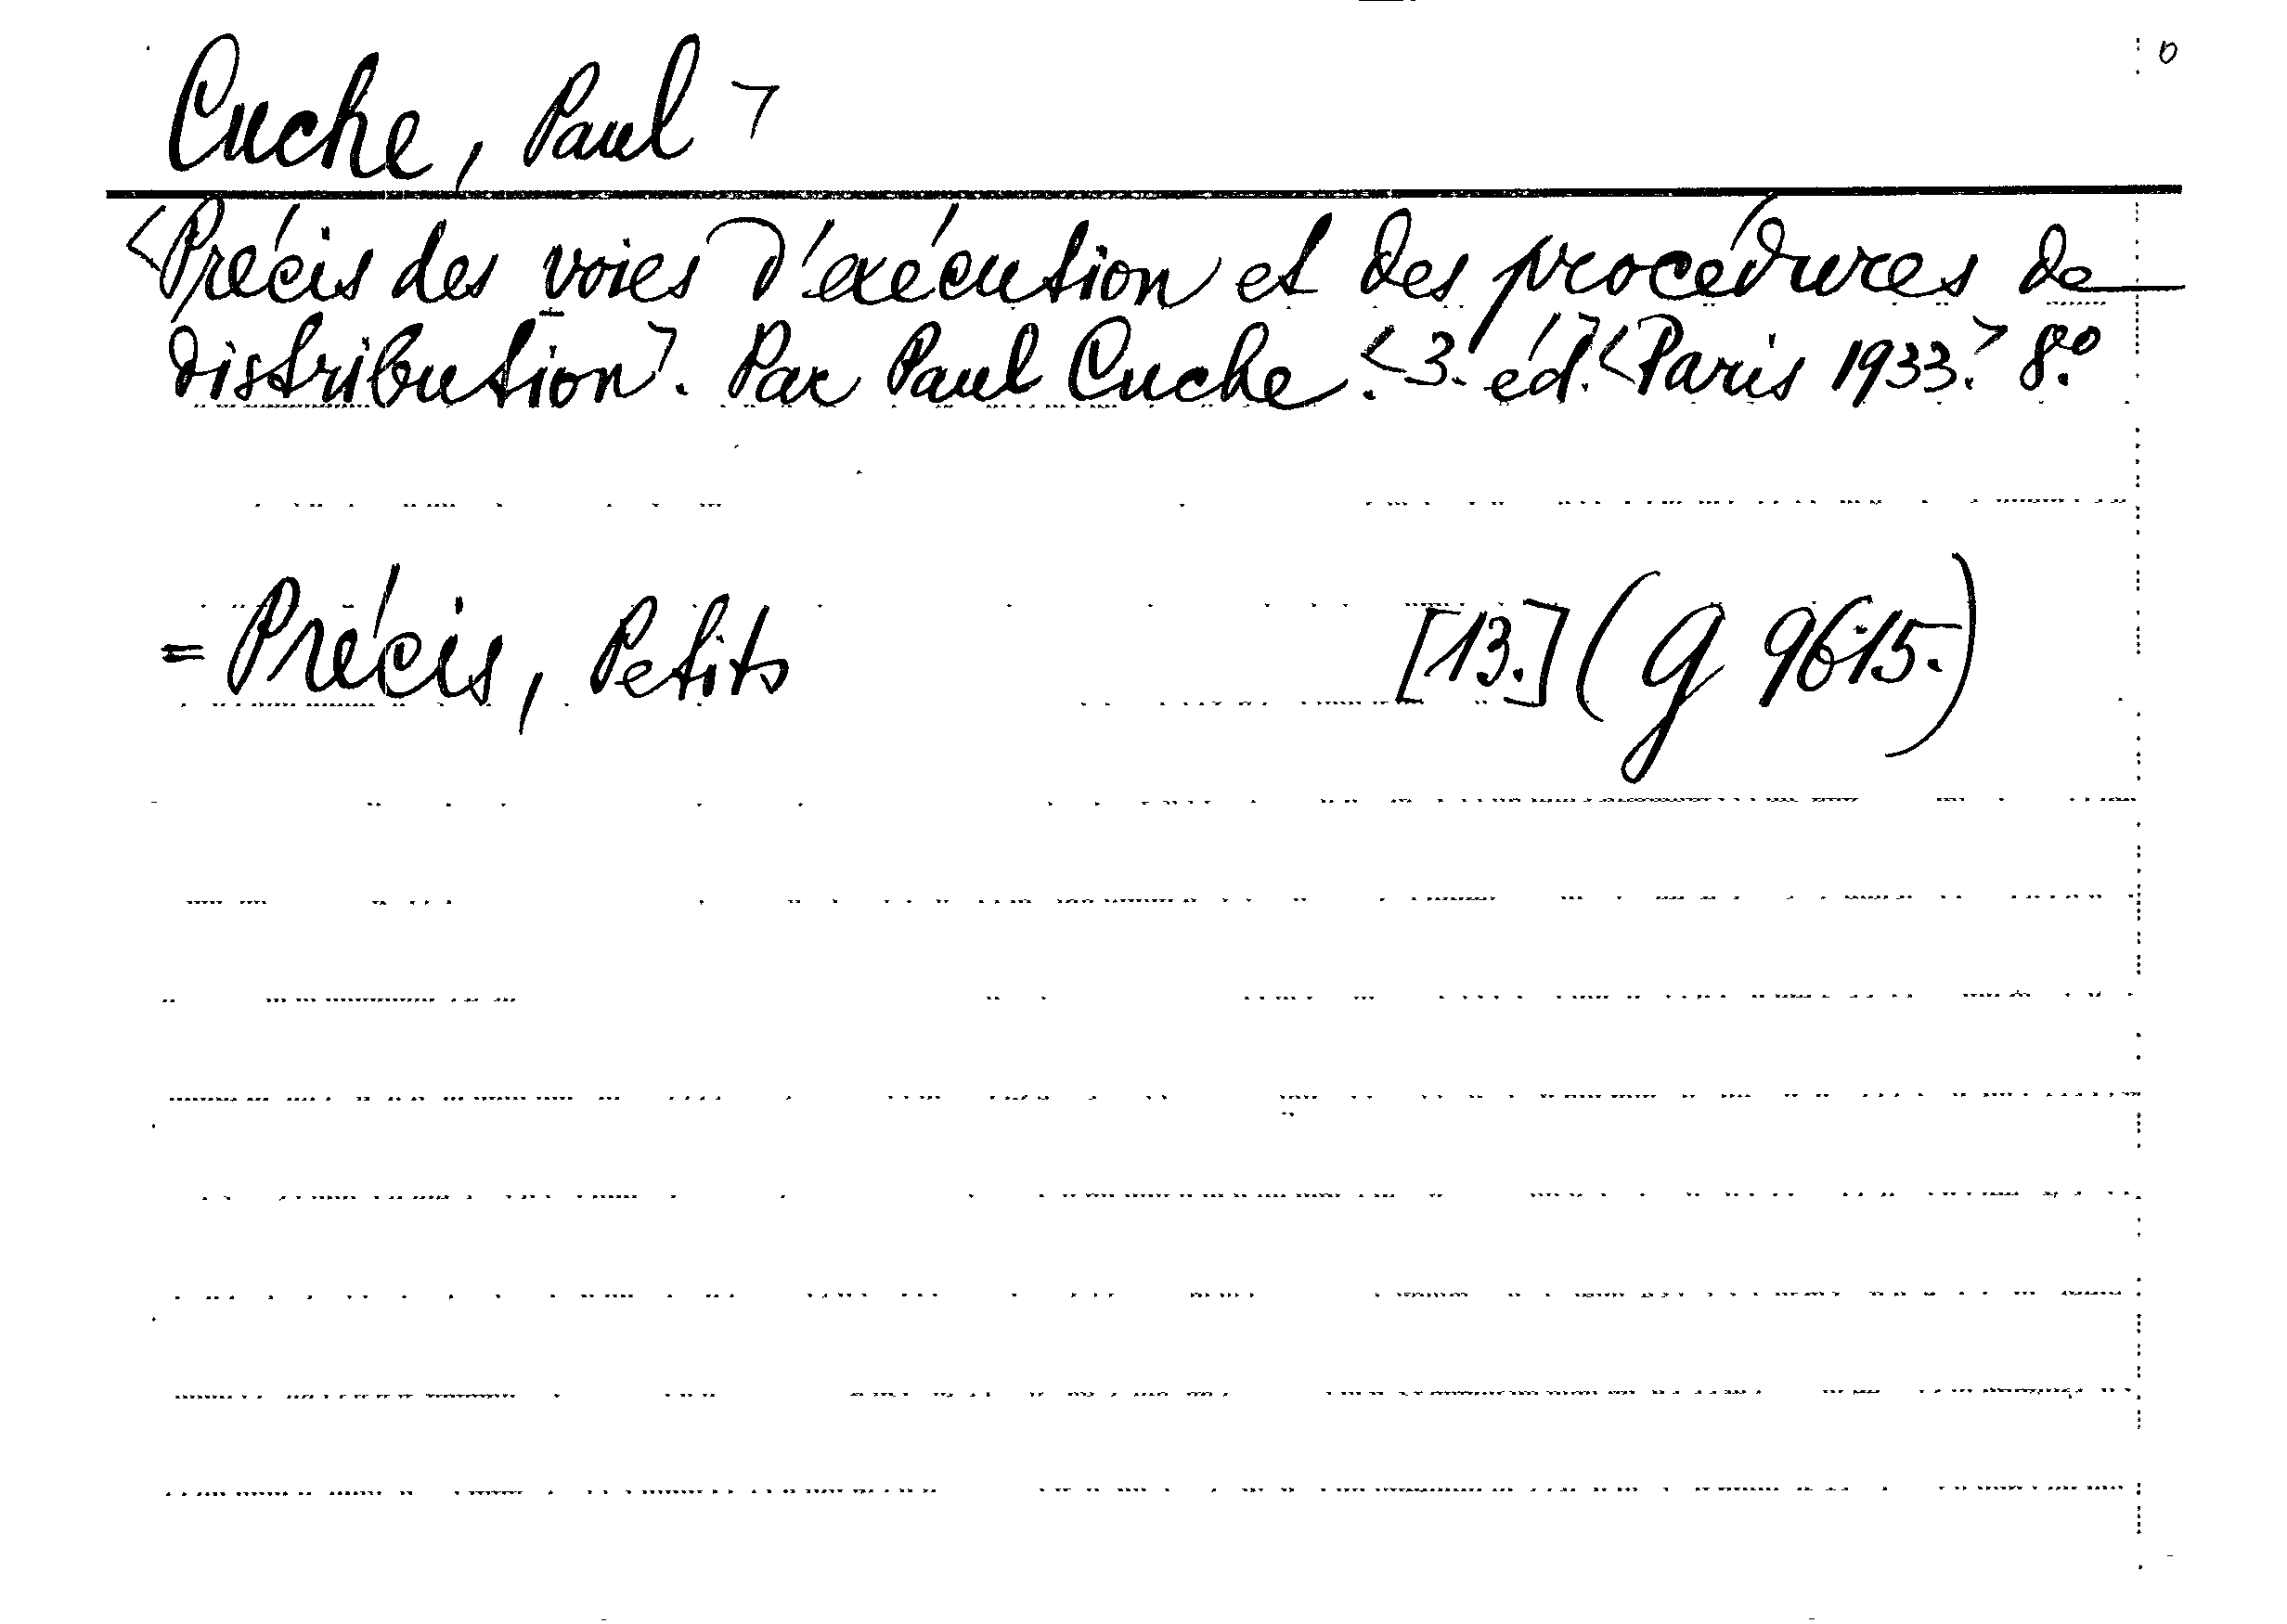 Cuche, Paul ┐
<Précis des voies d'exécution et des procédures de
distribution┐. Par Paul Cuche. <3. éd.┐ <Paris 1933.> 8.º
= Précis, Petits [13.] (g 9615.)